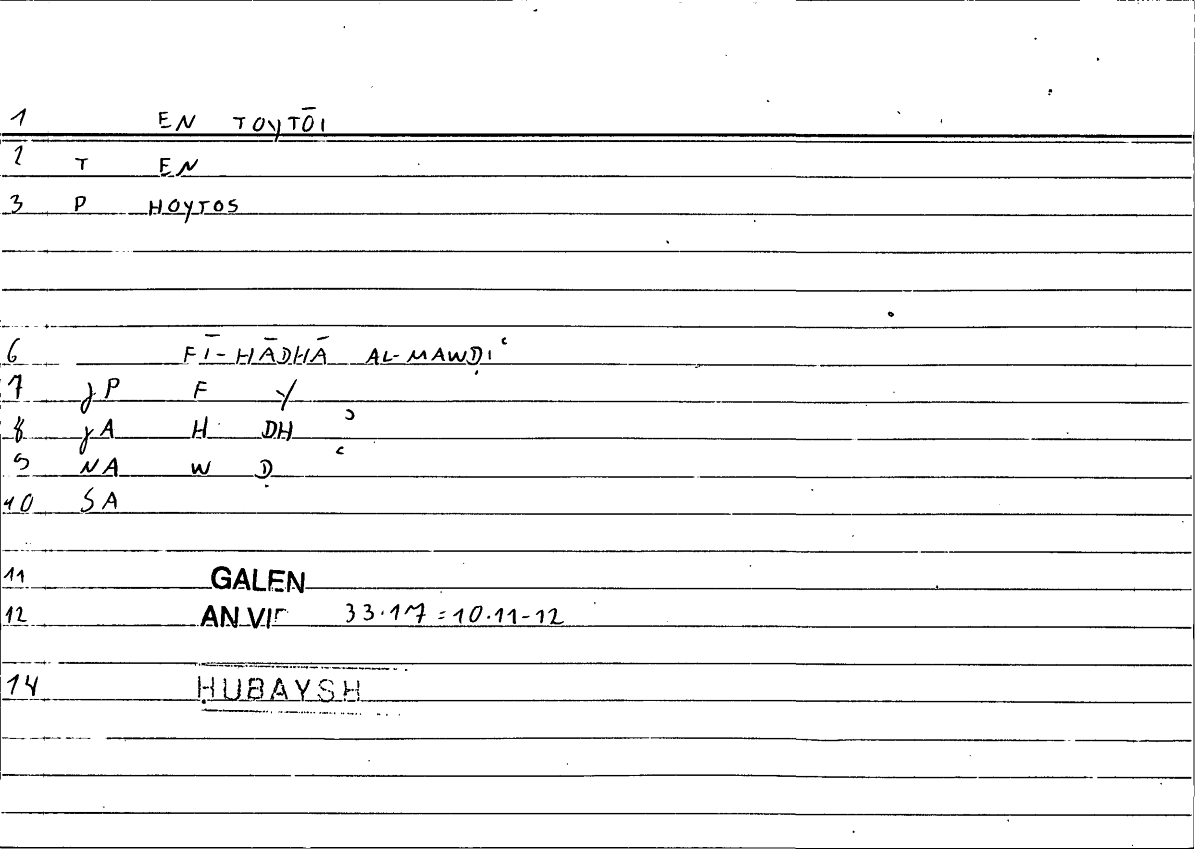 1 EN TOYTŌI
2 T EN
3 P HOYTOS
6 FĪ-HĀDHĀ AL-MAWḌIʿ
7 JP F Y
8 JA H DH ʾ
9 NA W Ḍ ʿ
10 SA
11 GALEN
12 AN VIR 33.17 = 10.11-12
14 ḤUBAYSH